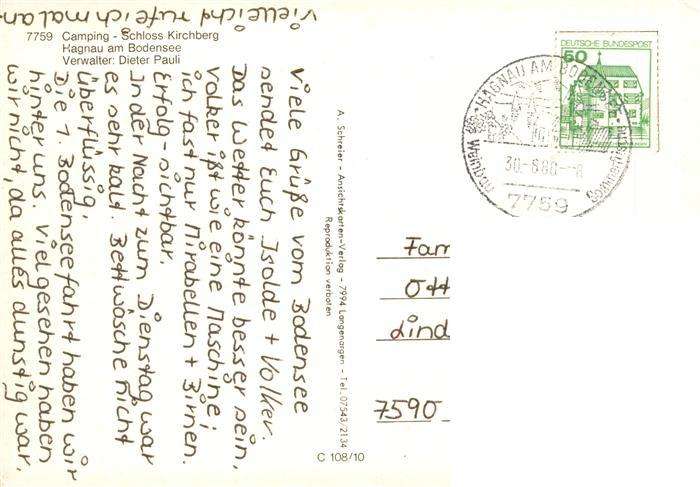 7759 Camping - Schloss Kirchberg
Hagnau am Bodensee
Verwalter: Dieter Pauli
Viele Grüße vom Bodensee
sendet Euch Isolde + Volker.
Das Wetter könnte besser sein,
Volker ißt wie eine Maschine;
ich fast nur Mirabellen + Birnen.
Erfolg - sichtbar.
In der Nacht zum Dienstag war
es sehr kalt. Bettwäsche nicht
überflüssig.
Die 1. Bodenseefahrt haben wir
hinter uns. Viel gesehen haben
wir nicht, da alles dunstig war.
Vielleicht rufe ich mal an.
A. Schreier - Ansichtskarten-Verlag - 7994 Langenargen - Tel. 07543/2134
Reproduktion verboten
C 108/10
DEUTSCHE BUNDESPOST
50
HAGNAU AM BODENSEE
Weinbau
7759
Fam
Ott
Lind
7590